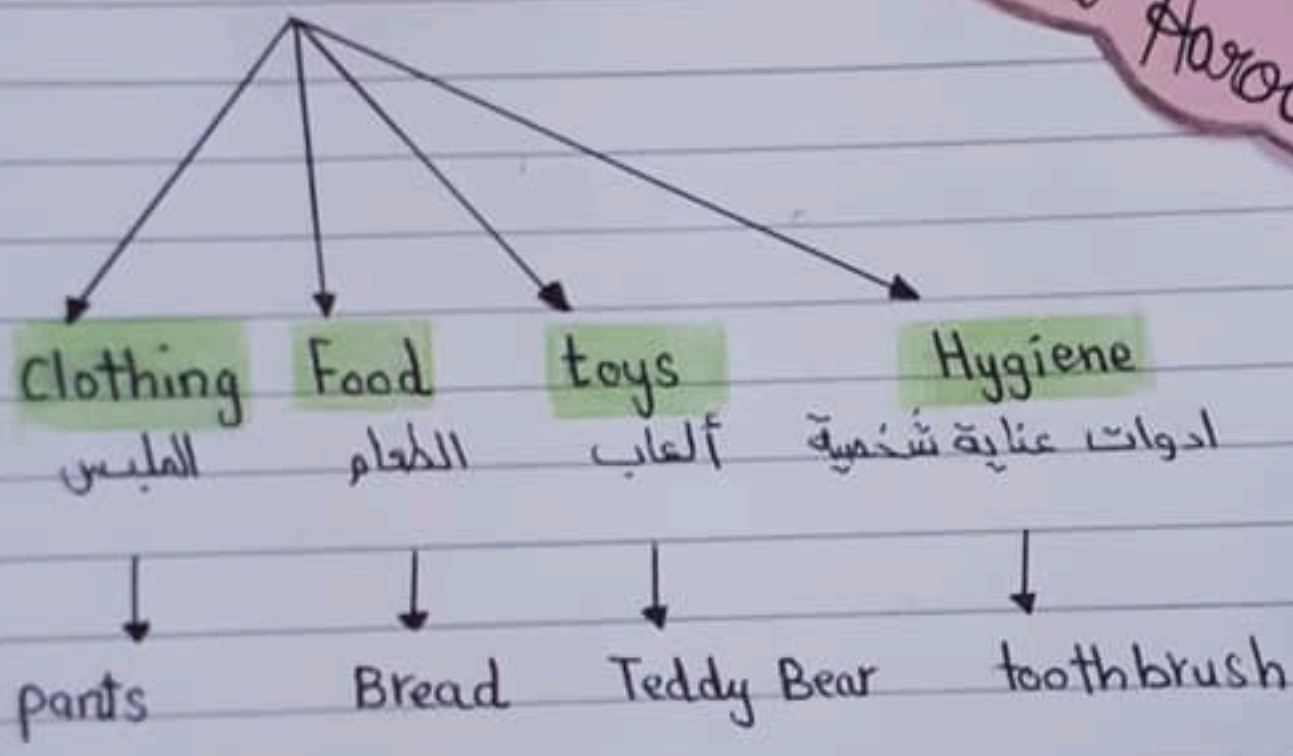 Clothing Food toys Hygiene
الملبس الطعام ألعاب ادوات عناية شخصية
pants Bread Teddy Bear toothbrush